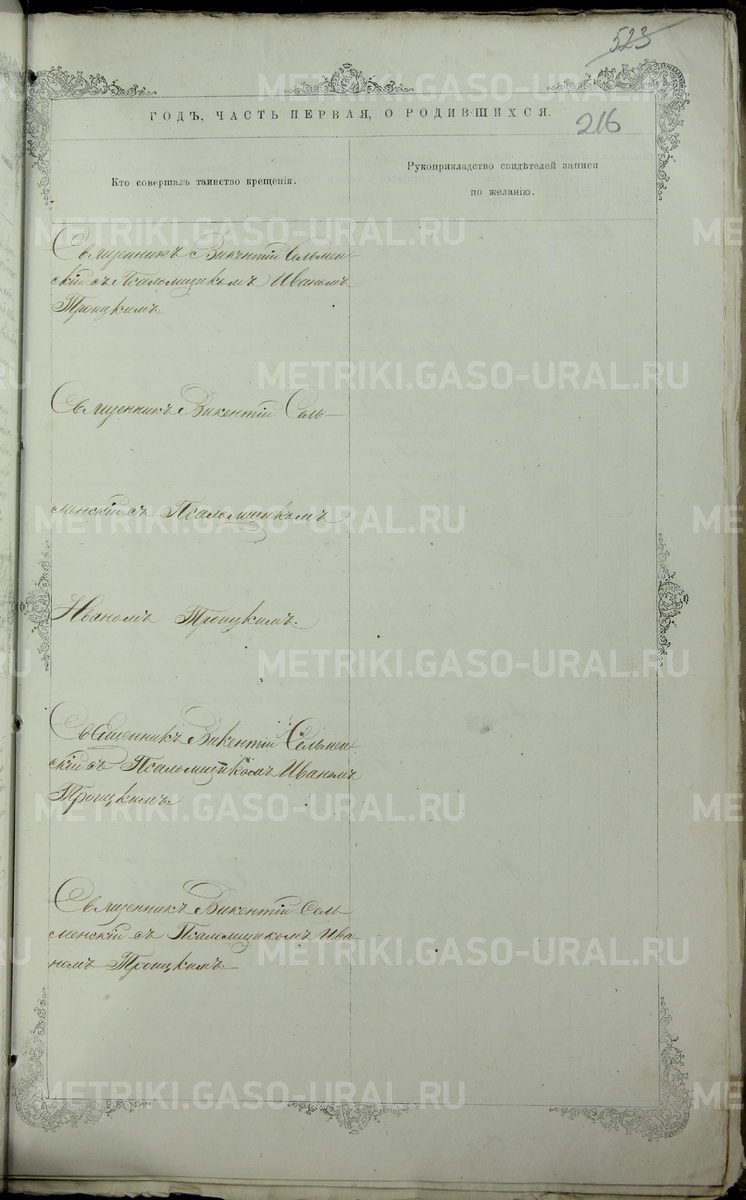 523
ГОДЪ, ЧАСТЬ ПЕРВАЯ, О РОДИВШИХСЯ.
216
Кто совершалъ таинство крещенія.
Рукоприкладство свидѣтелей записи
по желанію.
Священникъ Викентій Сельмен-
скій съ Псаломщикомъ Иваномъ
Троицкимъ
Священникъ Викентій Сель-
менскій съ Псаломщикомъ
Иваномъ Троицкимъ.
Священникъ Викентій Сельмен-
скій съ Псаломщикомъ Иваномъ
Троицкимъ.
Священникъ Викентій Сель-
менскій съ Псаломщикомъ Ива-
номъ Троицкимъ.
METRIKI.GASO-URAL.RU